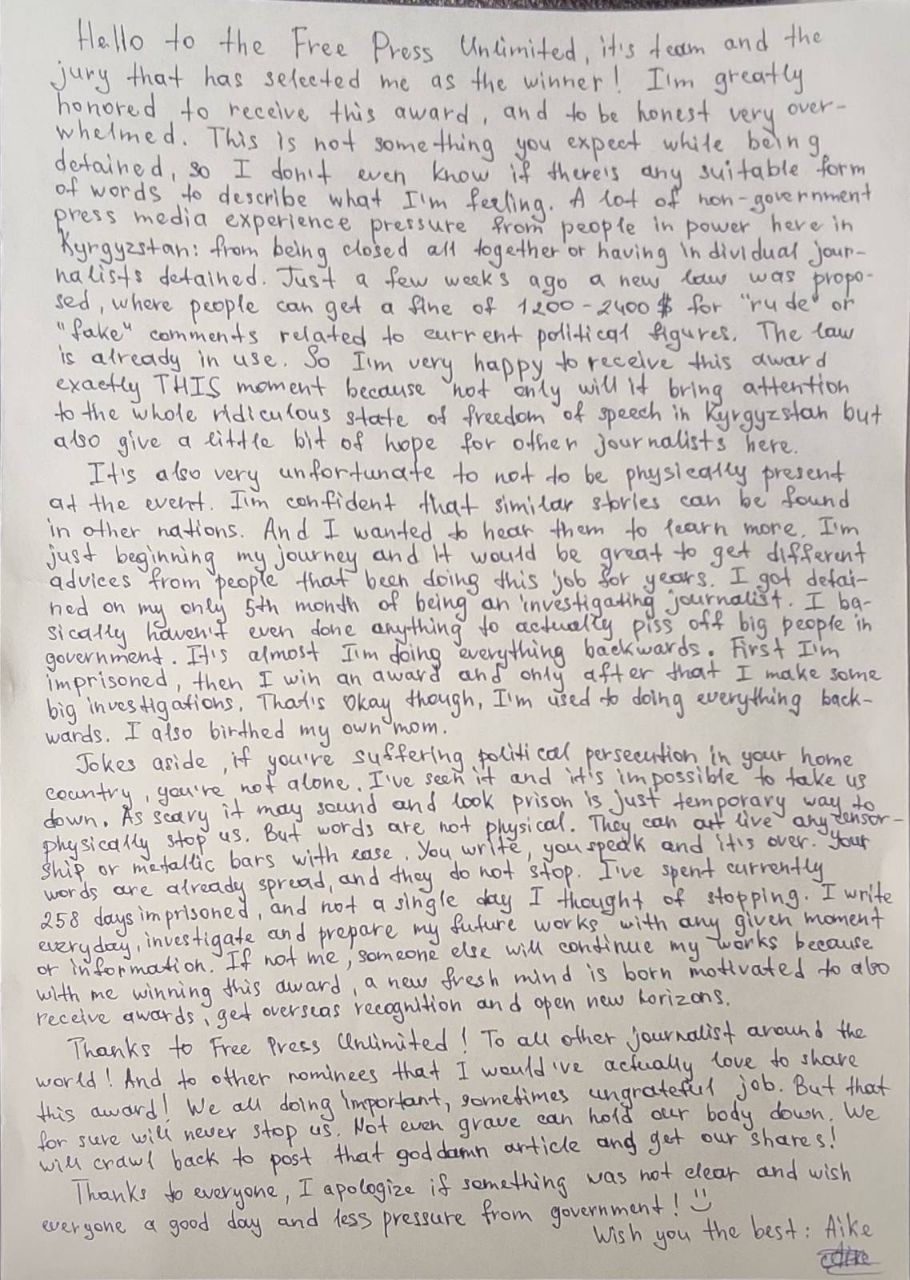 Hello to the Free Press Unlimited, it's team and the
jury that has selected me as the winner! I'm greatly
honored to receive this award, and to be honest very over-
whelmed. This is not something you expect while being
detained, so I don't even know if there's any suitable form
of words to describe what I'm feeling. A lot of non-government
press media experience pressure from people in power here in
Kyrgyzstan: from being closed all together or having individual jour-
nalists detained. Just a few weeks ago a new law was propo-
sed, where people can get a fine of 1200-2400$ for "rude" or
"fake" comments related to current political figures. The law
is already in use. So I'm very happy to receive this award
exactly THIS moment because not only will it bring attention
to the whole ridiculous state of freedom of speech in Kyrgyzstan but
also give a little bit of hope for other journalists here.
It's also very unfortunate to not to be physically present
at the event. I'm confident that similar stories can be found
in other nations. And I wanted to hear them to learn more. I'm
just beginning my journey and it would be great to get different
advices from people that been doing this job for years. I got detai-
ned on my only 5th month of being an investigating journalist. I ba-
sically haven't even done anything to actually piss off big people in
government. It's almost I'm doing everything backwards. First I'm
imprisoned, then I win an award and only after that I make some
big investigations. That's Okay though, I'm used to doing everything back-
wards. I also birthed my own mom.
Jokes aside, if you're suffering political persecution in your home
country, you're not alone. I've seen it and it's impossible to take us
down. As scary it may sound and look prison is just temporary way to
physically stop us. But words are not physical. They can out live any censor-
ship or metallic bars with ease. You write, you speak and it's over. Your
words are already spread, and they do not stop. I've spent currently
258 days imprisoned, and not a single day I thought of stopping. I write
everyday, investigate and prepare my future works with any given moment
or information. If not me, someone else will continue my works because
with me winning this award, a new fresh mind is born motivated to also
receive awards, get overseas recognition and open new horizons.
Thanks to Free Press Unlimited! To all other journalist around the
world! And to other nominees that I would've actually love to share
this award! We all doing important, sometimes ungrateful job. But that
for sure will never stop us. Not even grave can hold our body down. We
will crawl back to post that goddamn article and get our shares!
Thanks to everyone, I apologize if something was not clear and wish
everyone a good day and less pressure from government! :)
Wish you the best: Aike